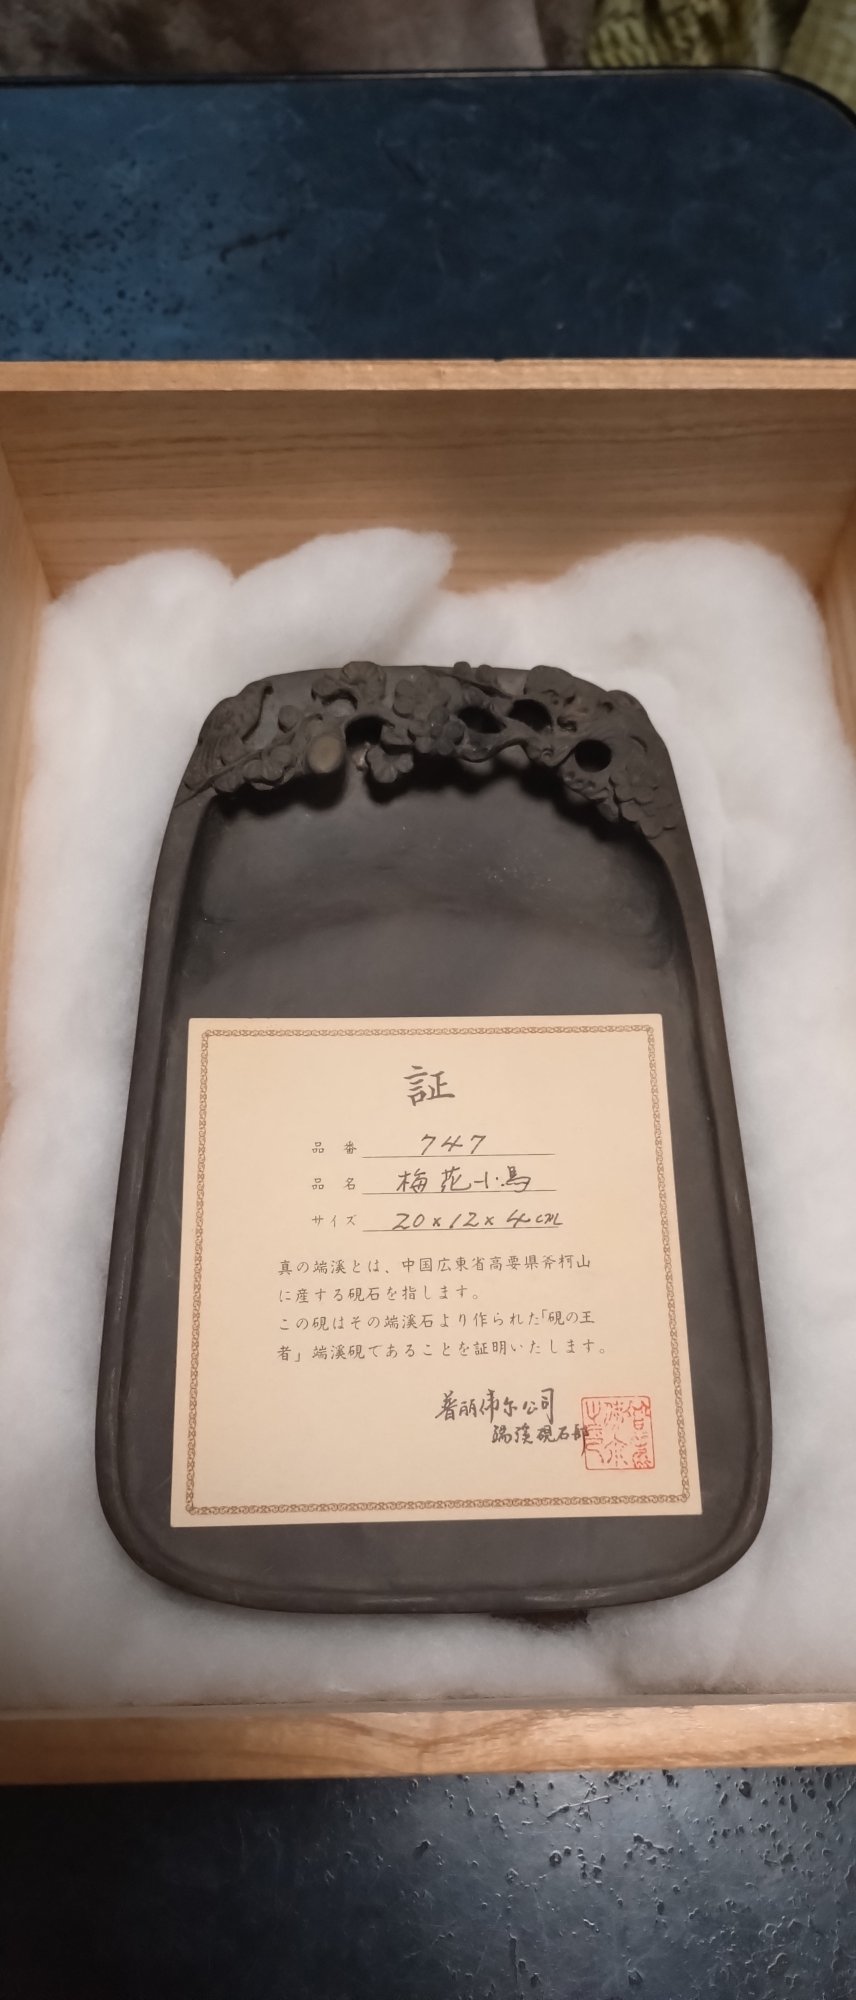 証
品番 747
品名 梅花小鳥
サイズ 20×12×4cm
真の端溪とは、中国広東省高要県斧柯山
に産する硯石を指します。
この硯はその端溪石より作られた「硯の王
者」端溪硯であることを証明いたします。
普丽伟尔公司
端溪硯石部